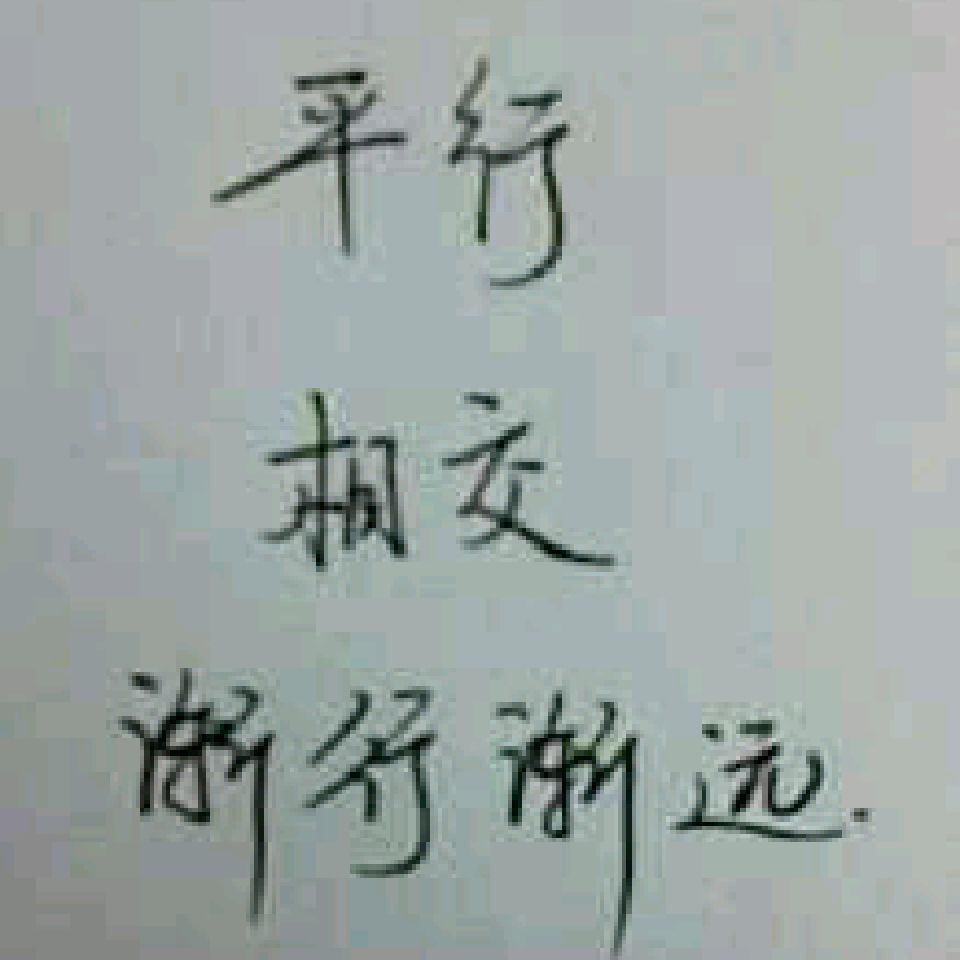 平行
相交
渐行渐远.